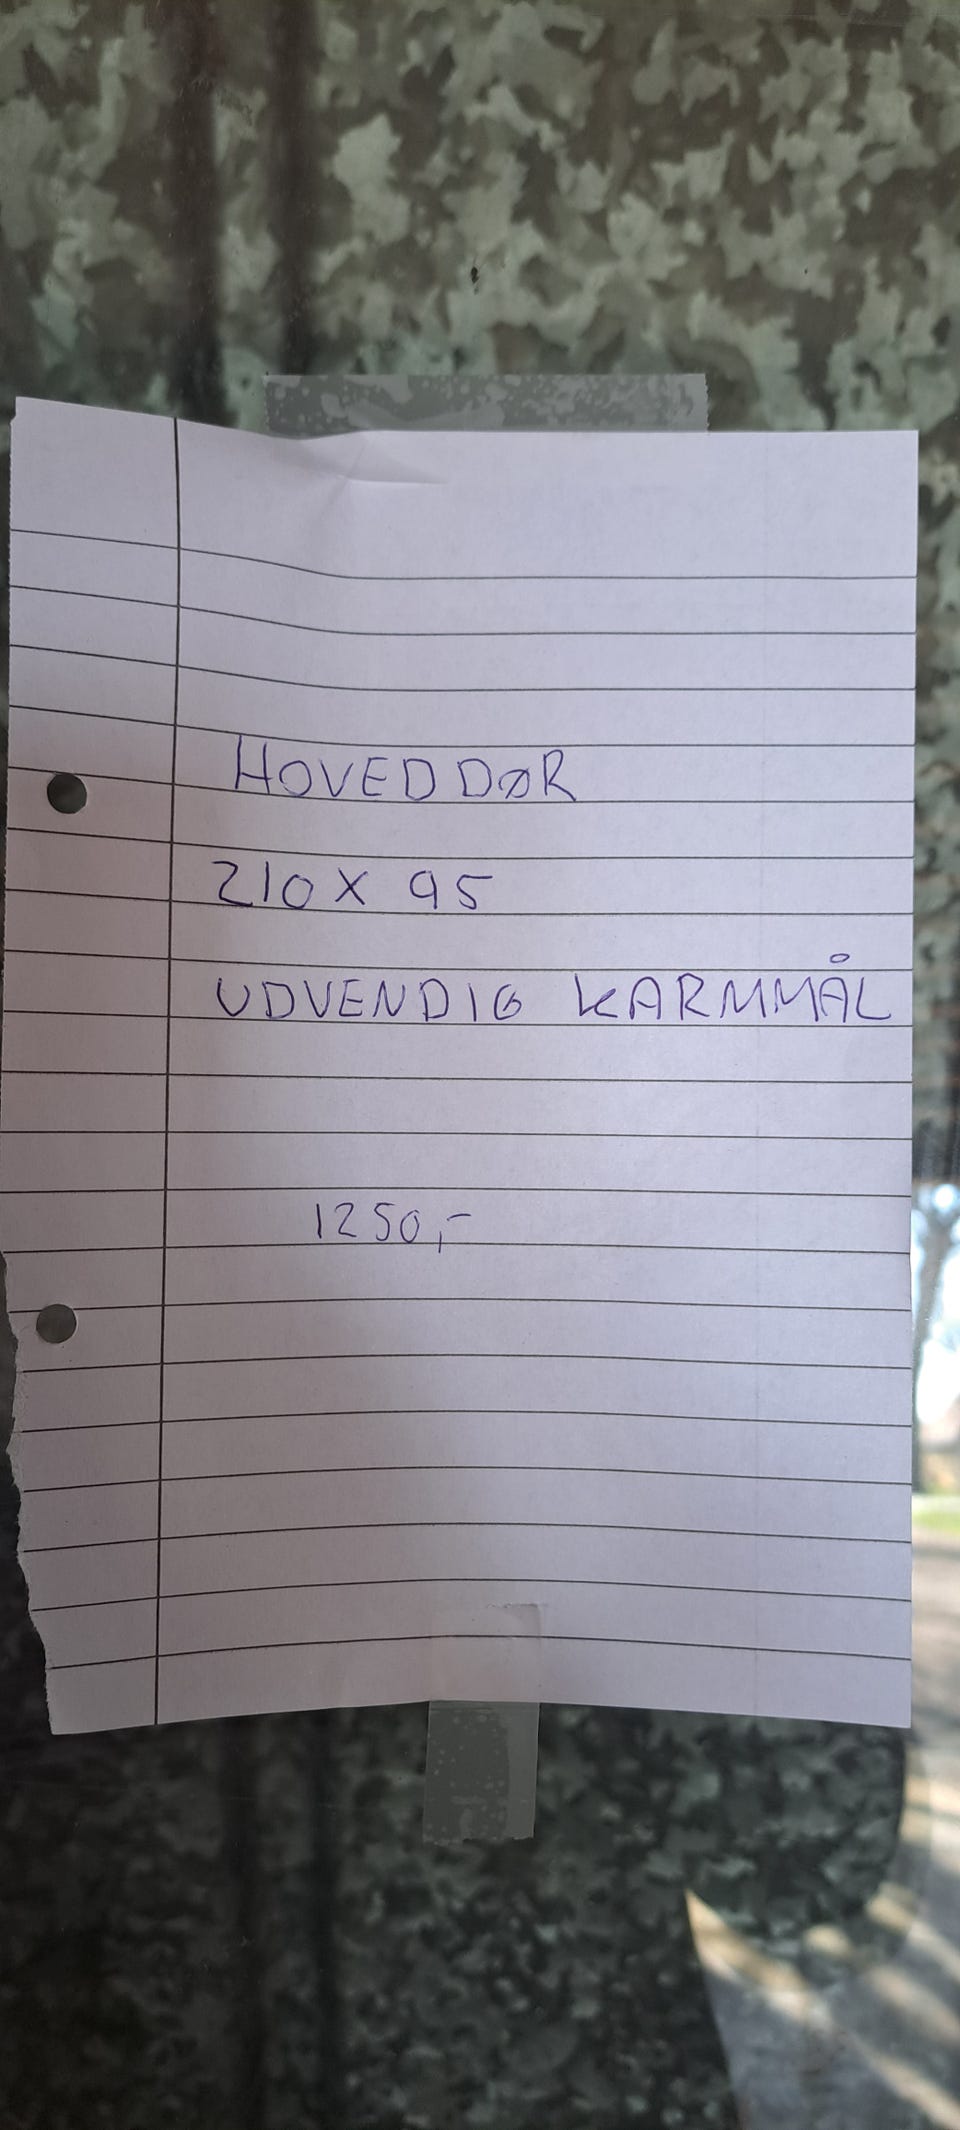 HOVEDDØR
210 X 95
UDVENDIG KARMMÅL
1250,-